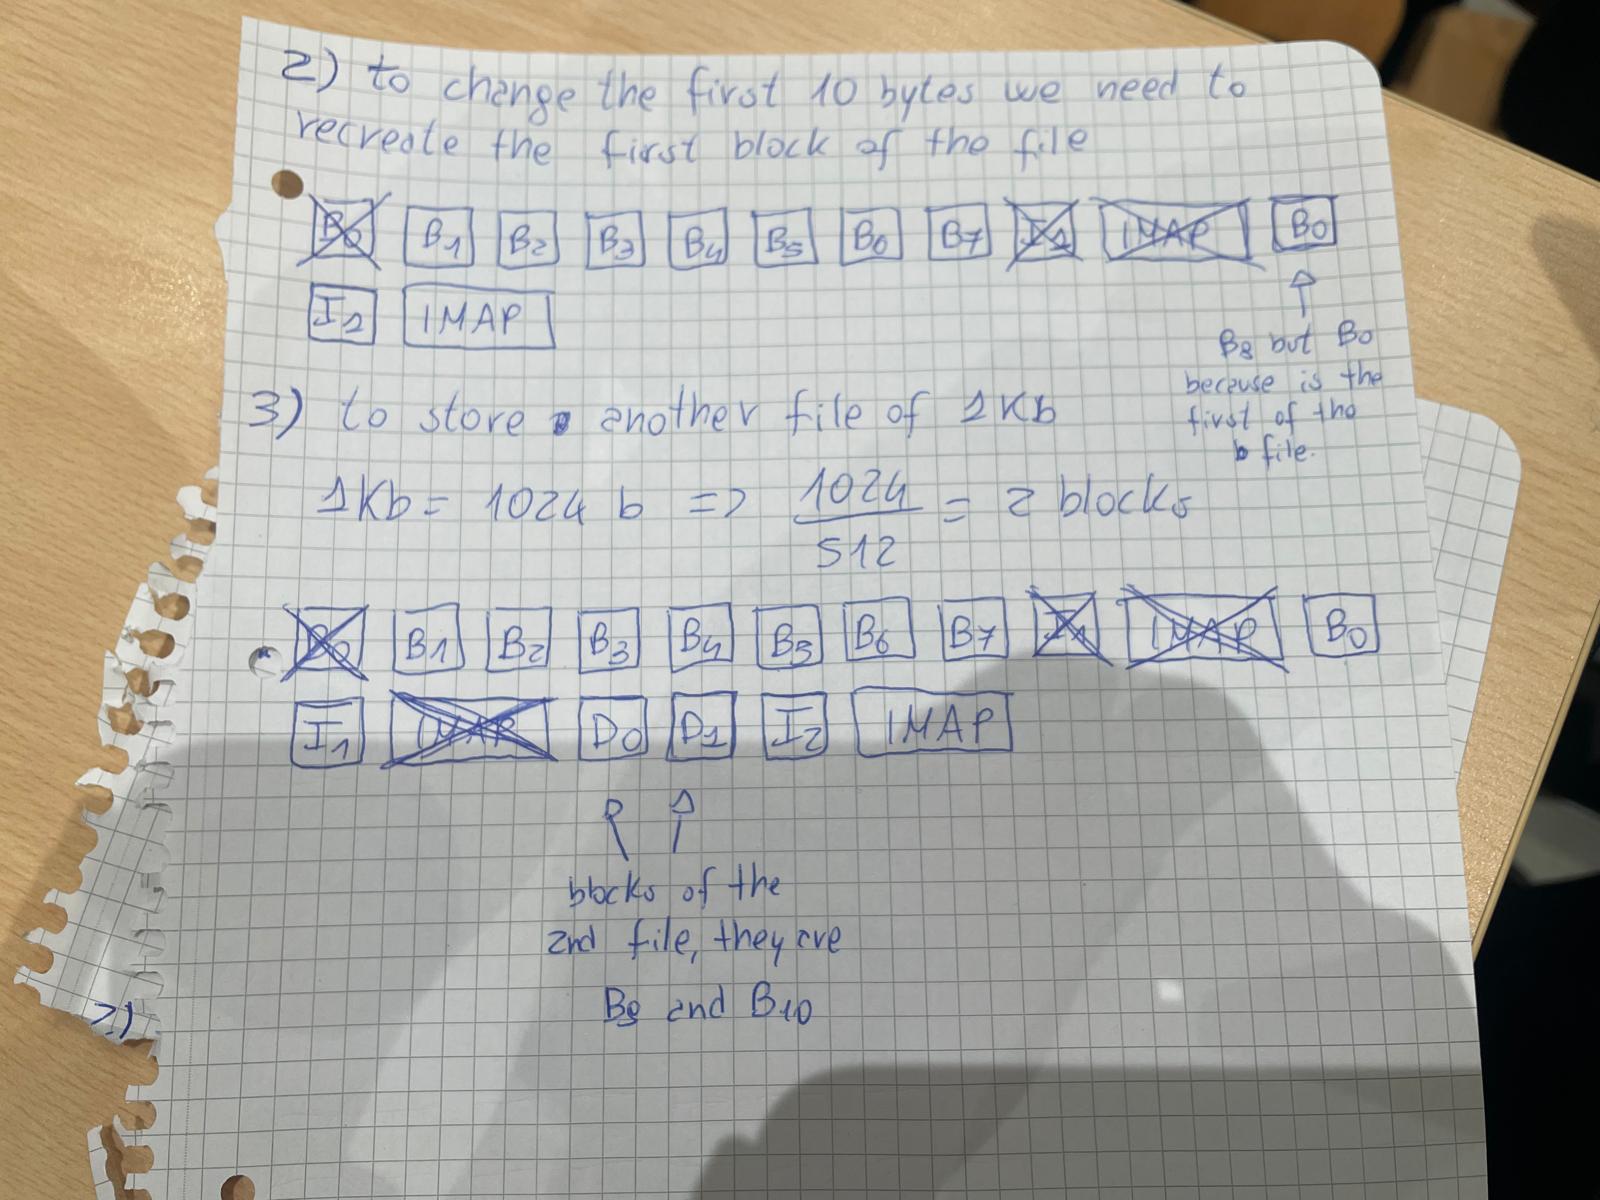 2) to change the first 10 bytes we need to
recreate the first block of the file
B0 B1 B2 B3 B4 B5 B6 B7 I1 IMAP B0
I1 IMAP
B8 but B0
because is the
first of the
b file.
3) to store another file of 1Kb
1Kb = 1024 b => 1024/512 = 2 blocks
B0 B1 B2 B3 B4 B5 B6 B7 I1 IMAP B0
I1 IMAP D0 D1 I2 IMAP
blocks of the
2nd file, they are
B9 and B10
2)